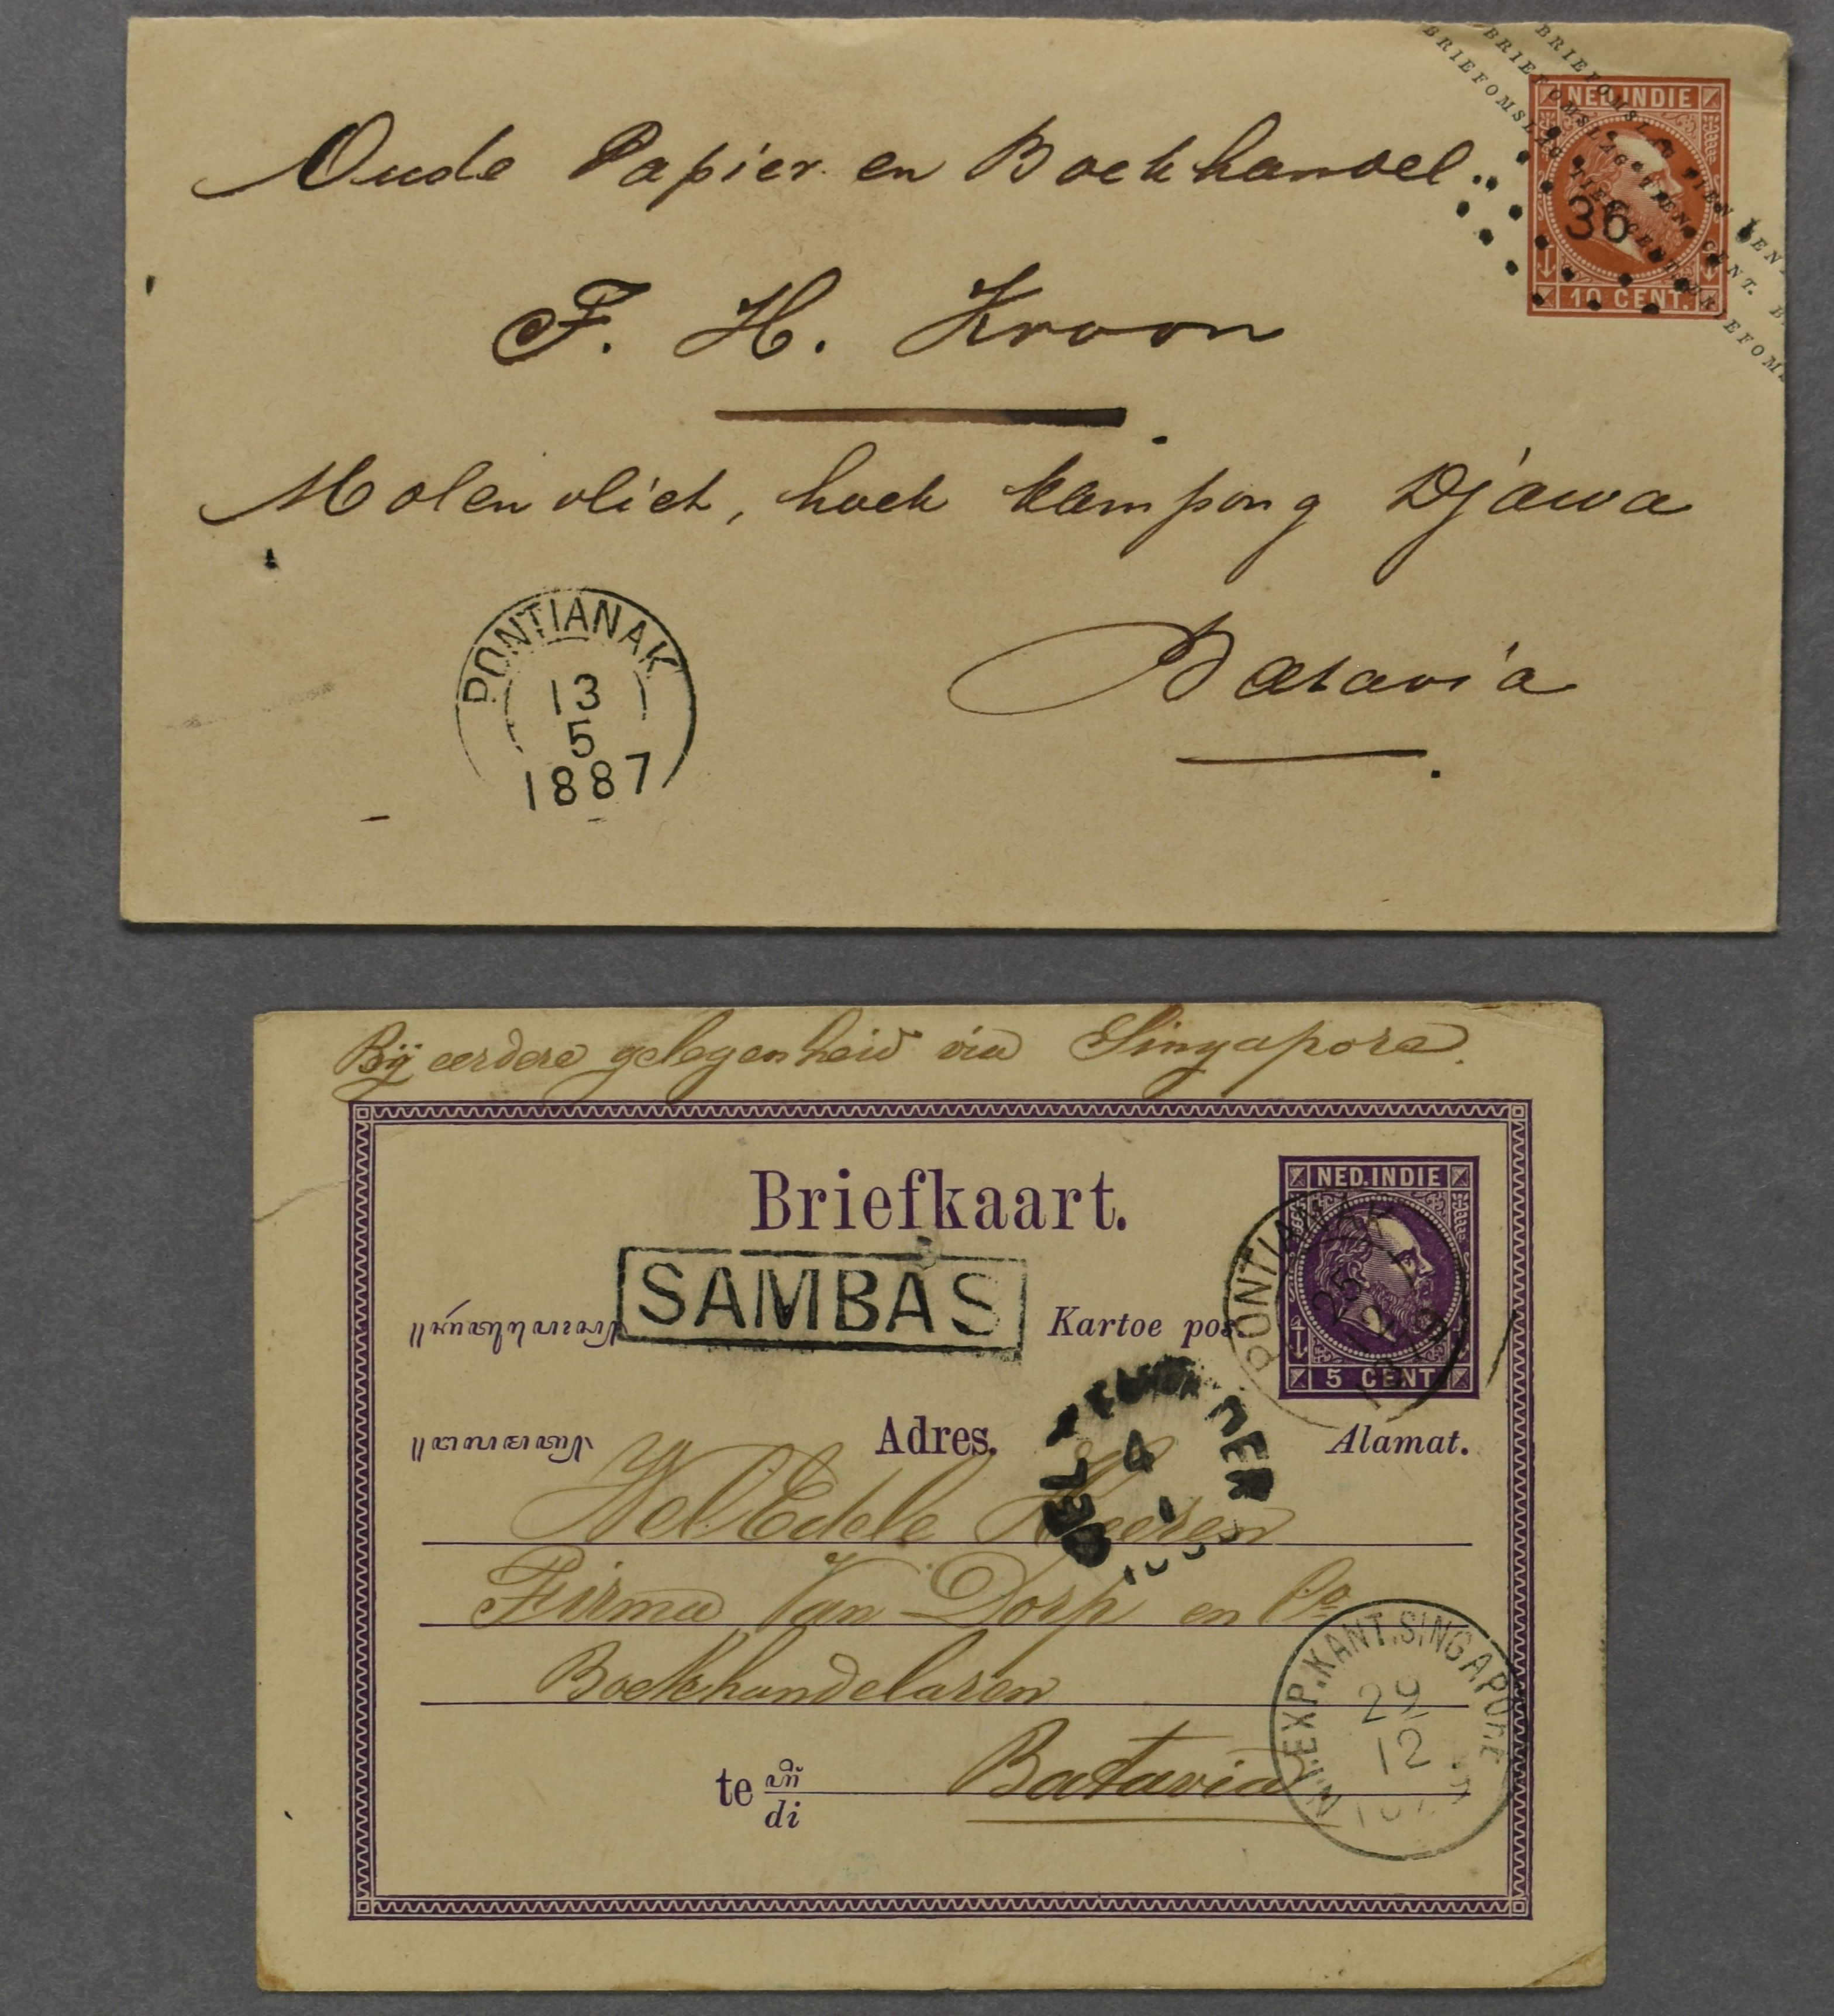 Oude Papier en Boekhandel.
F. H. Kroon
Molenvliet, hoek kampong Djawa
Batavia
PONTIANAK
13
5
1887
NED.INDIE
36
10 CENT.
BRIEFOMSLAG TIEN CENT. BRIEFOM
BRIEFOMSLAG TIEN CENT. B
BRIEFOMSLAG TIEN CENT
Bij eerdere gelegenheid via Singapore.
Briefkaart.
NED.INDIE
5 CENT
PONTIANAK
25
12
SAMBAS
Kartoe pos.
Adres.
Alamat.
4
1
WelEdele Heeren
Firma Van Dorp en Co
Boekhandelaren
te
di
Batavia
N.I.EXP.KANT.SINGAPORE
29
12